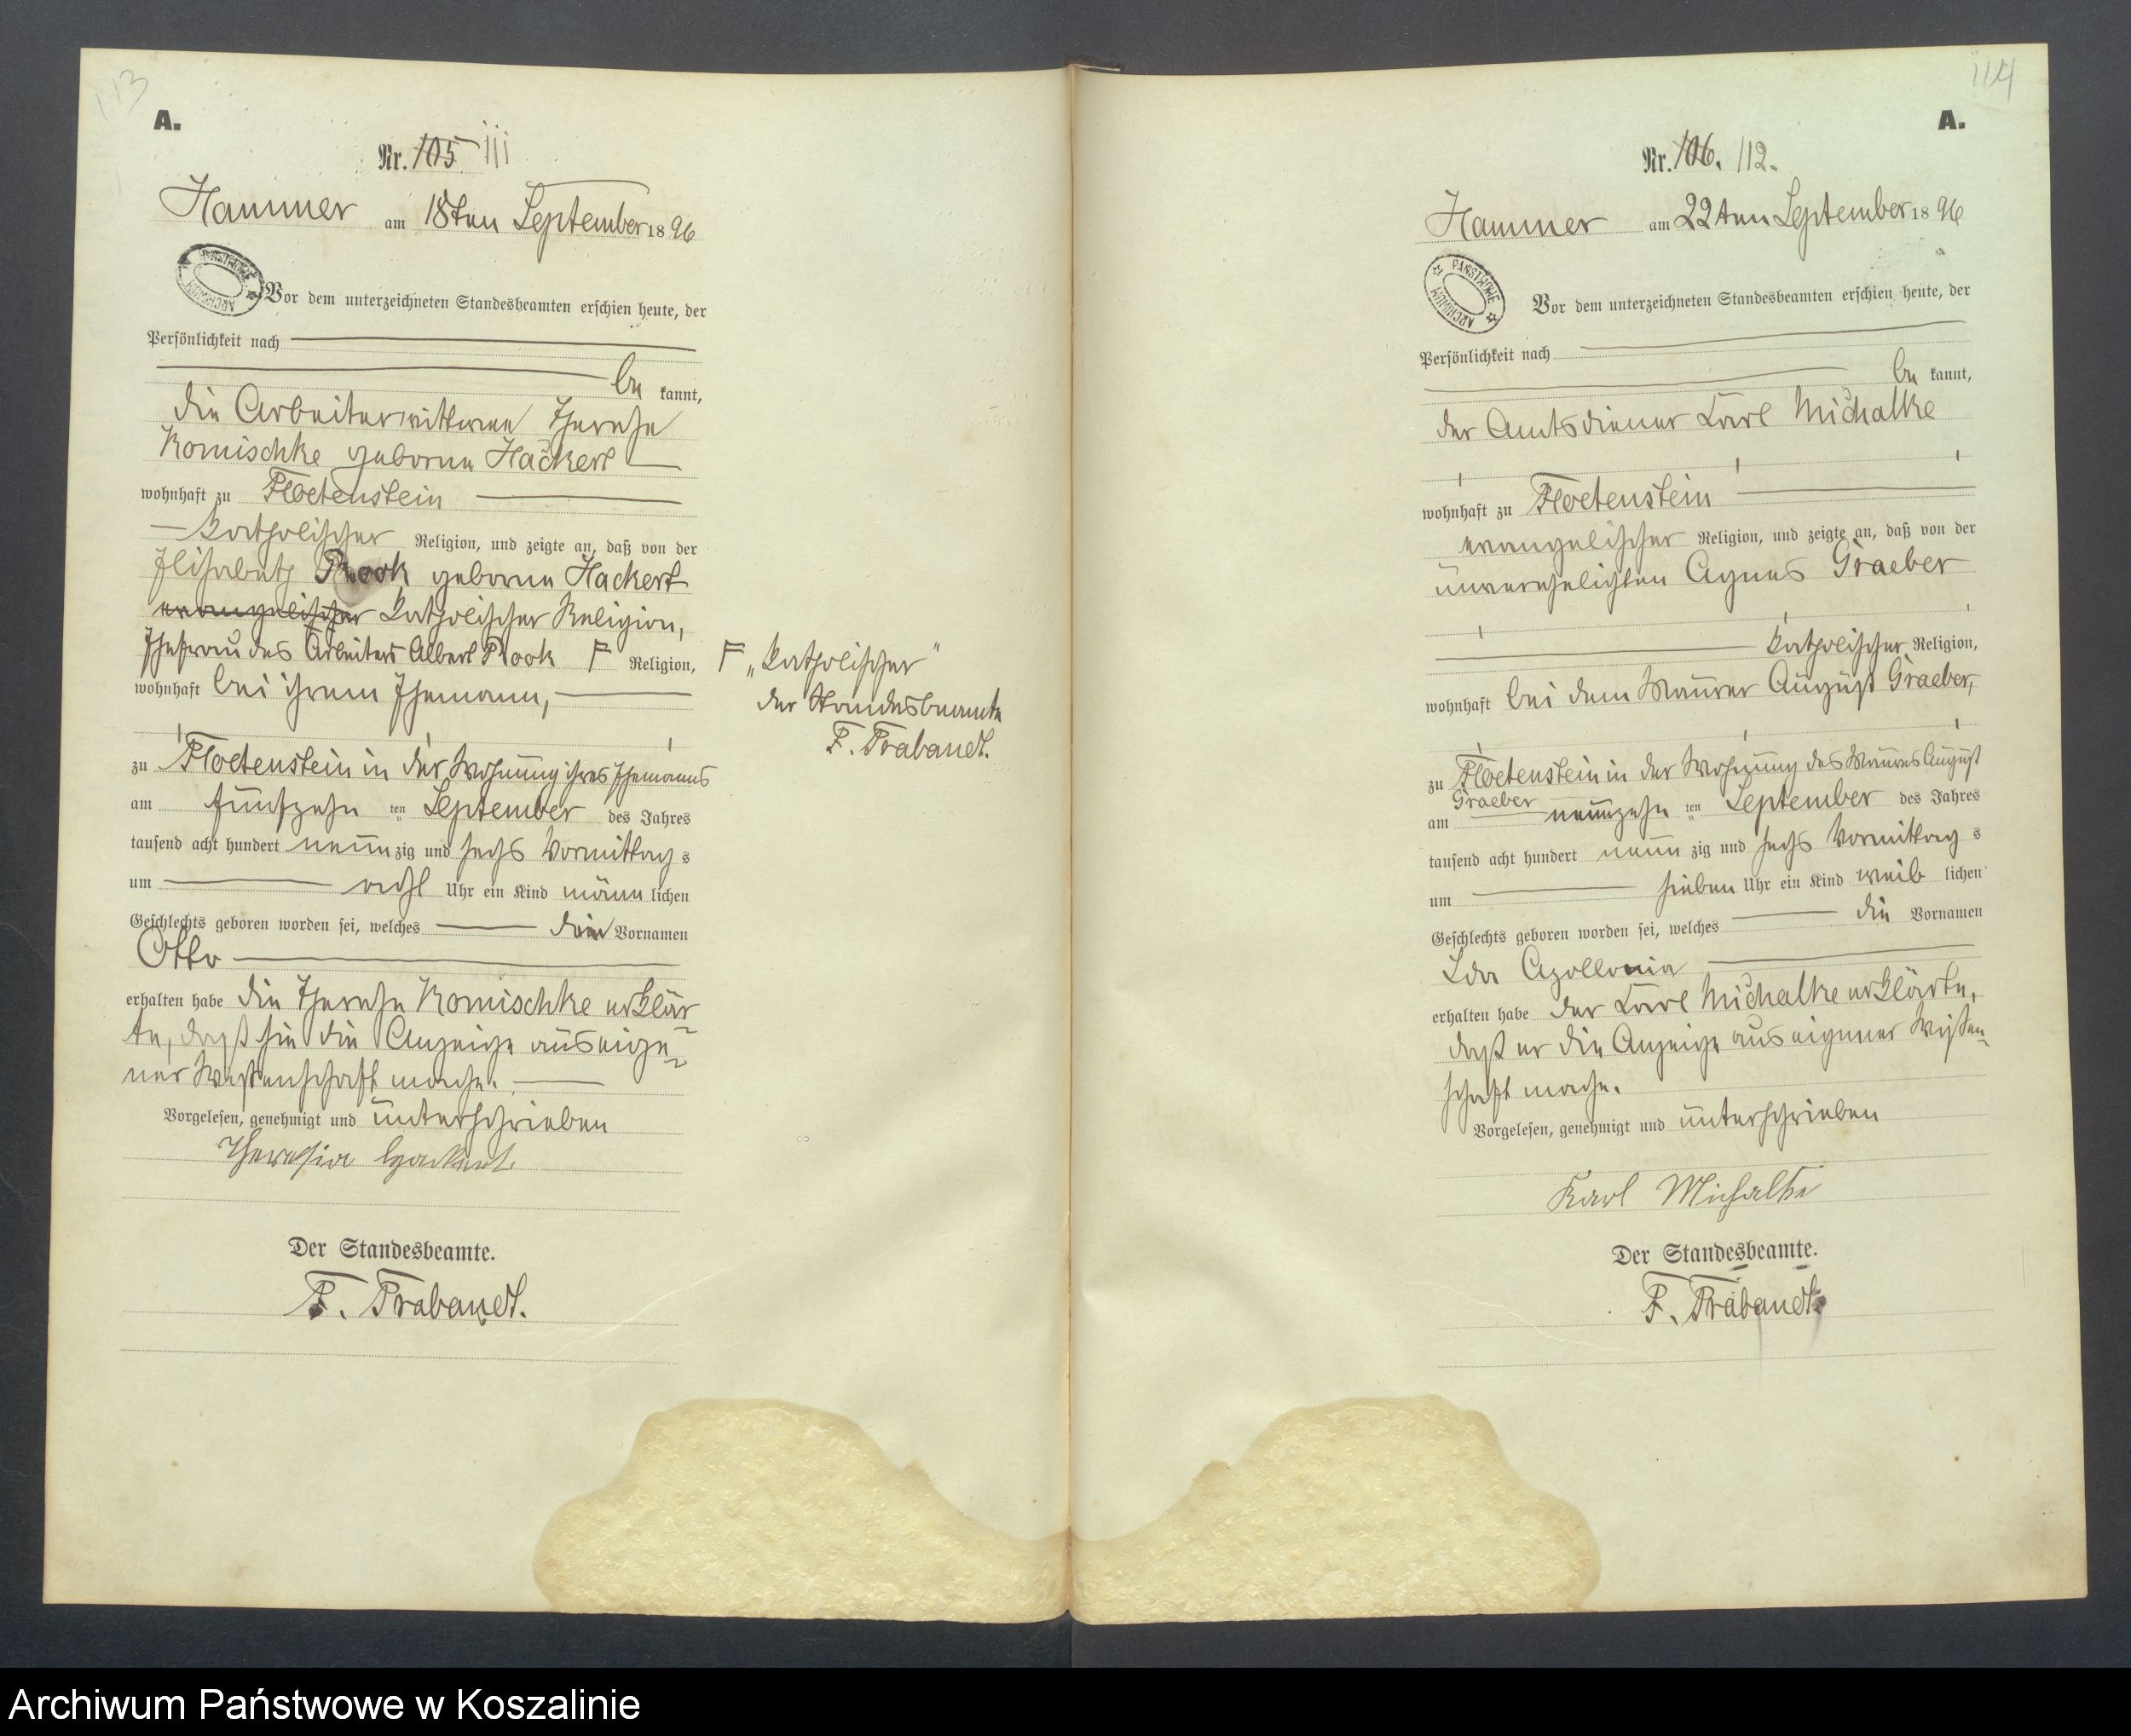 113
A.
Nr. 105 111
Hammer am 18ten September 1896
PAŃSTWOWE ARCHIWUM
Vor dem unterzeichneten Standesbeamten erschien heute, der
Persönlichkeit nach
be kannt,
die Arbeiterwittwe Therese
Komischke geborne Hackert
wohnhaft zu Floetenstein
katholischer Religion, und zeigte an, daß von der
Elisabeth Prook geborne Hackert
evangelischer katholischer Religion,
Ehefrau des Arbeiters Albert Prook F Religion,
wohnhaft bei ihrem Ehemann,
zu Floetenstein in der Wohnung ihres Ehemanns
am fünfzehn ten September des Jahres
tausend acht hundert neun zig und sechs Vormittag s
um acht Uhr ein Kind männ lichen
Geschlechts geboren worden sei, welches den Vornamen
Otto
erhalten habe die Therese Komischke erklär-
te, daß sie die Anzeige aus eige-
ner Wissenschaft mache.
Vorgelesen, genehmigt und unterschrieben
Theresia Hackert.
Der Standesbeamte.
F. Trabandt.
F „katholischer"
der Standesbeamte
F. Trabandt.
114
A.
Nr. 106. 112.
Hammer am 22ten September 1896
PAŃSTWOWE ARCHIWUM
Vor dem unterzeichneten Standesbeamten erschien heute, der
Persönlichkeit nach
be kannt,
der Amtsdiener Carl Michalke
wohnhaft zu Floetenstein
evangelischer Religion, und zeigte an, daß von der
unverehelichten Agnes Graeber
katholischer Religion,
wohnhaft bei dem Maurer August Graeber,
zu Floetenstein in der Wohnung des Maurers August
Graeber
am neunzehn ten September des Jahres
tausend acht hundert neun zig und sechs Vormittag s
um sieben Uhr ein Kind weib lichen
Geschlechts geboren worden sei, welches die Vornamen
Ida Apollonia
erhalten habe der Carl Michalke erklärte,
daß er die Anzeige aus eigener Wissen-
schaft mache.
Vorgelesen, genehmigt und unterschrieben
Karl Michalke
Der Standesbeamte.
F. Trabandt.
Archiwum Państwowe w Koszalinie